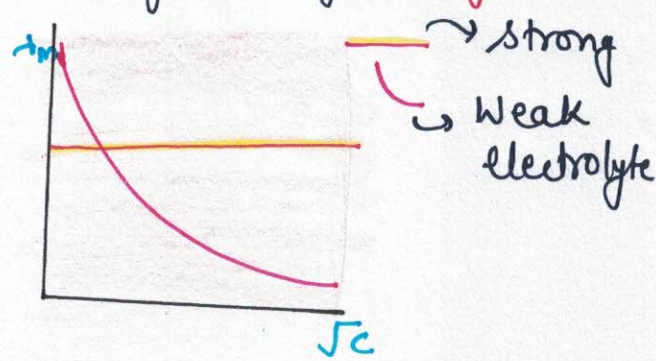 λm
strong
Weak
electrolyte
√C